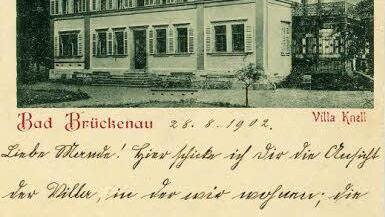 Bad Brückenau 28. 8. 1902. Villa Knell
Liebe! Hier schicke ich Dir die Ansicht
der Villa, in der wir wohnen; die